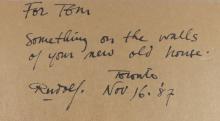 For Tom
Something on the walls
of your new old house.
Toronto
Rudolf. Nov 16. '87